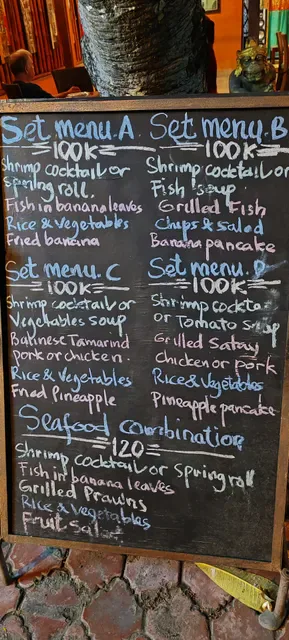 Set menu. A.
100K
Shrimp cocktail or
spring roll.
Fish in banana leaves
Rice & Vegetables
Fried banana
Set menu. B
100K
Shrimp cocktail or
Fish soup
Grilled Fish
Chips & Salad
Banana pancake
Set menu. C
100K
Shrimp cocktail or
Vegetables soup
Balinese Tamarind
pork or chicken.
Rice & Vegetables
Fried Pineapple
Set menu. D
100K
Shrimp cockta
or Tomato soup
Grilled Satay
Chicken or pork
Rice & Vegetables
Pineapple pancake
Seafood combination
120
Shrimp cocktail or Spring roll
Fish in banana leaves
Grilled Prawns
Rice & Vegetables
Fruit Salad